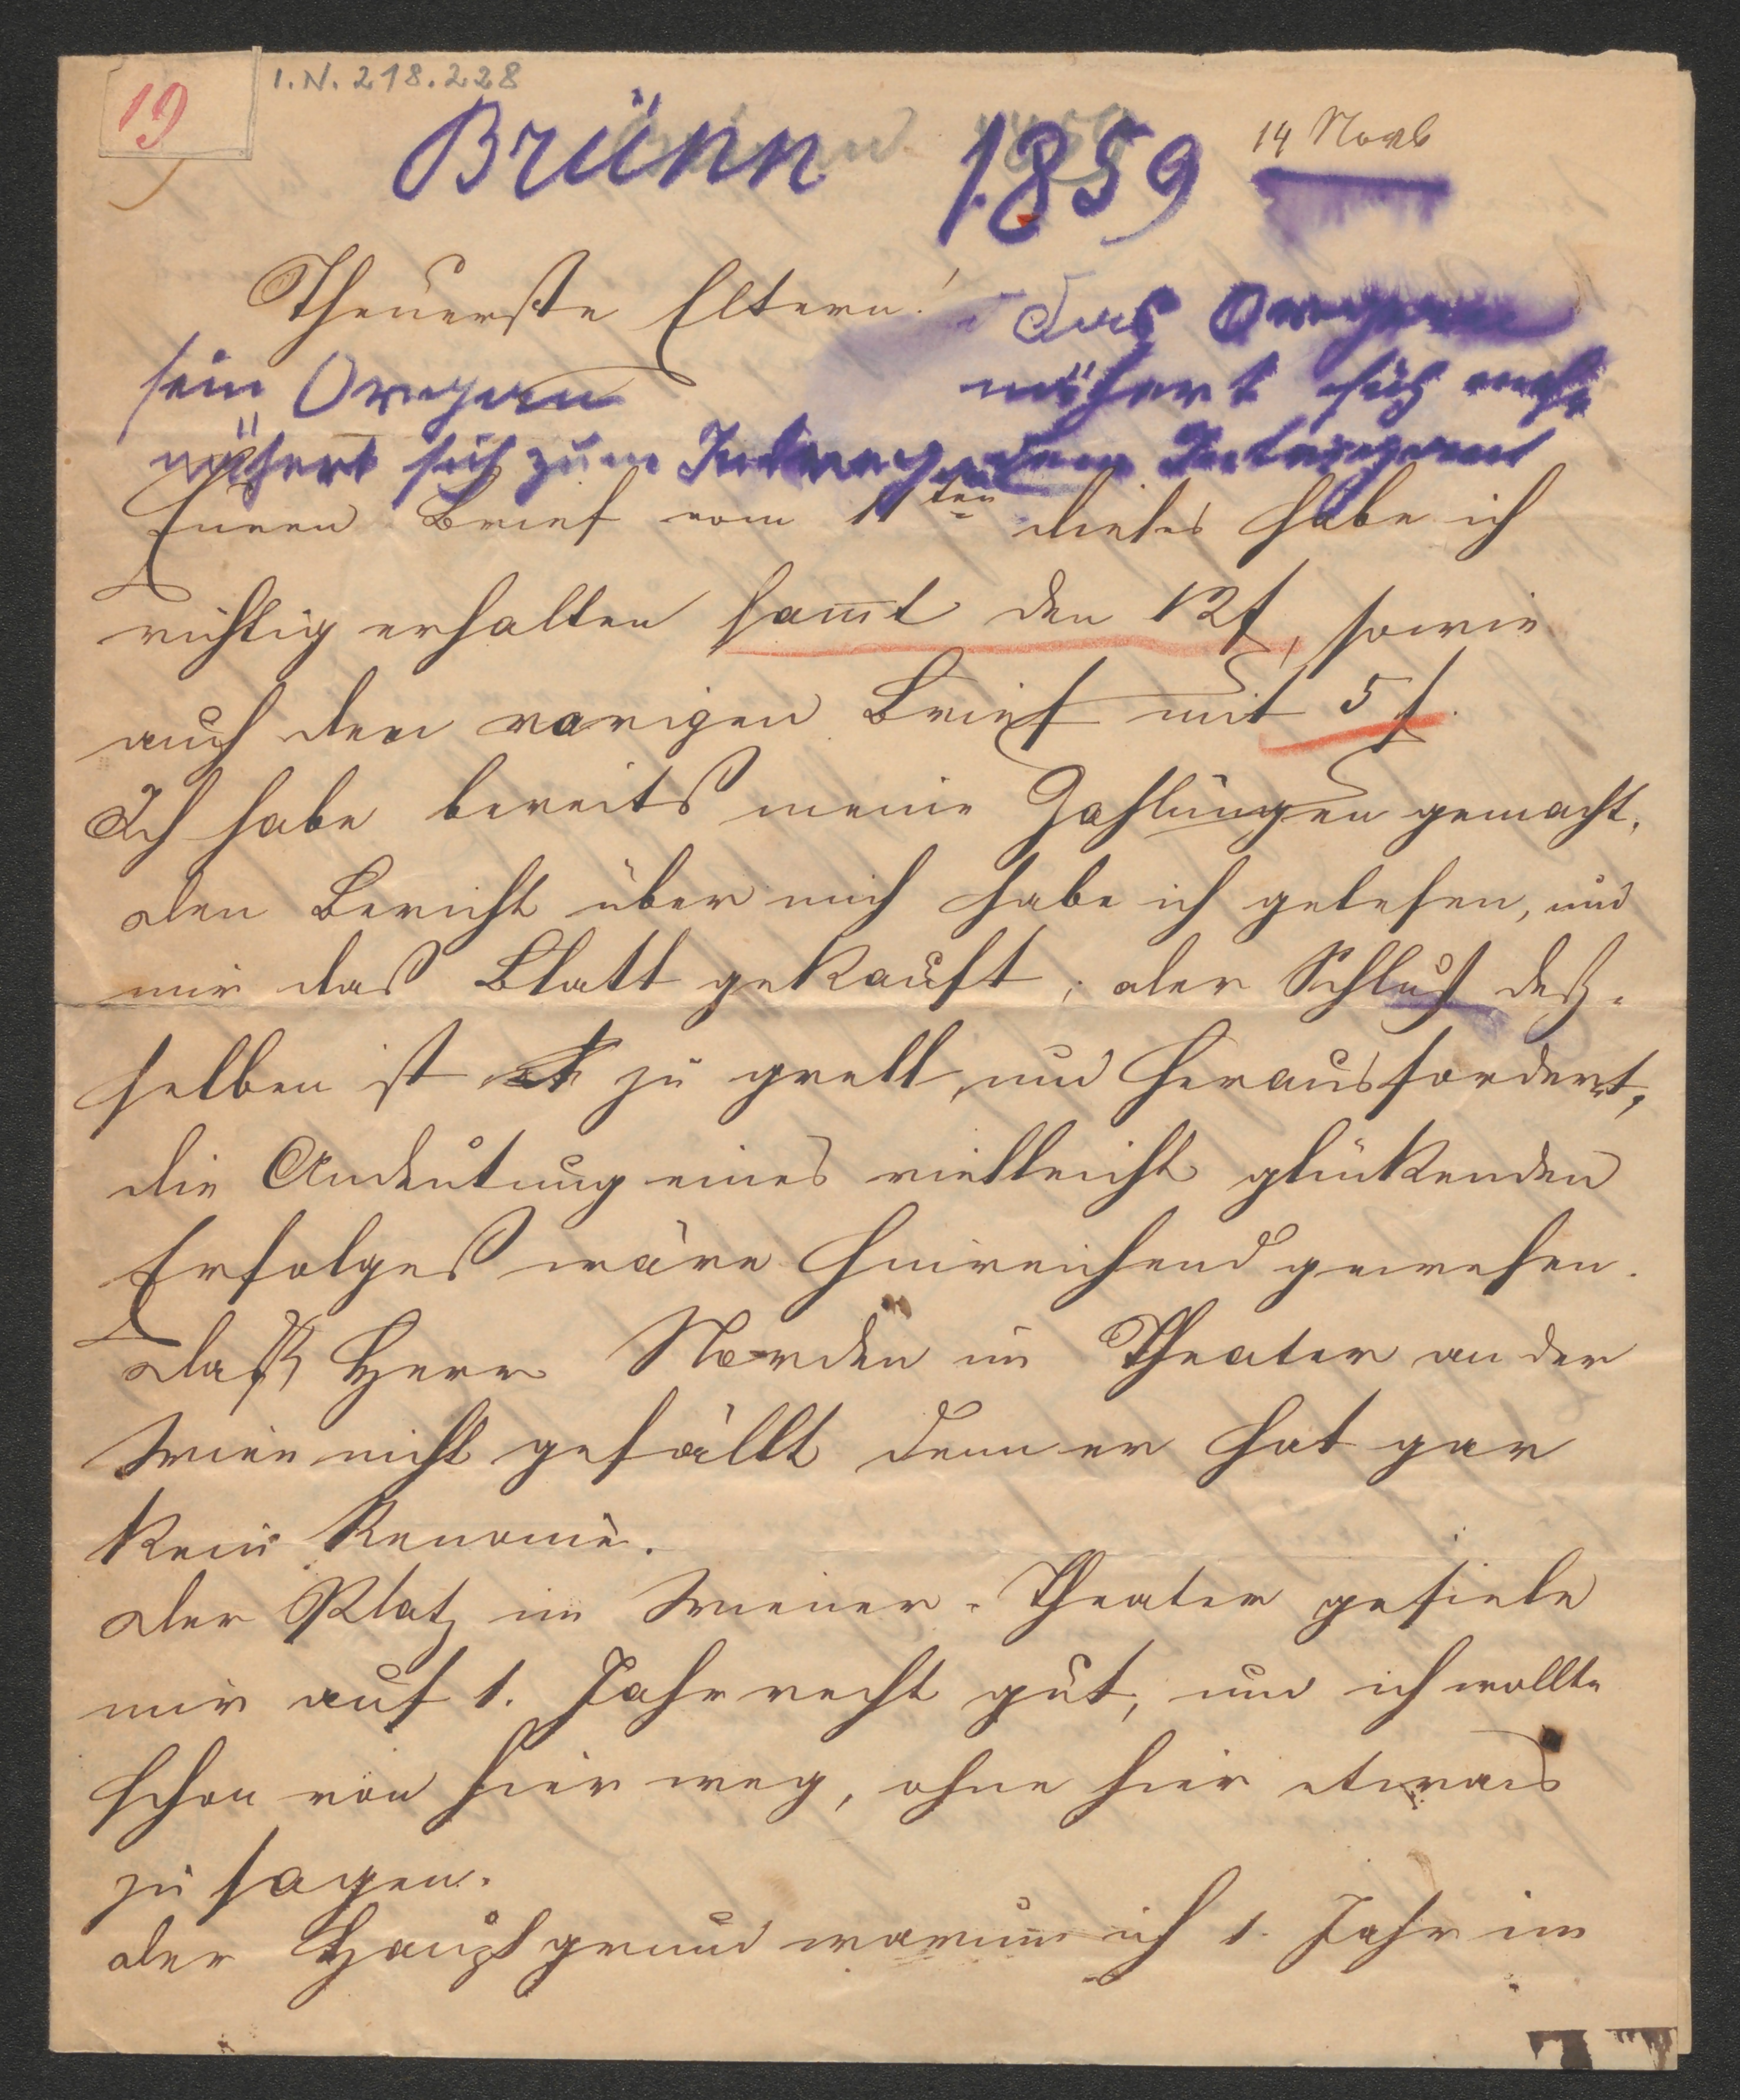 19
I.N. 218.228
Brünn 1859
14 Novb
Theuerste Eltern!
das Organ
sein Organ
nähert sich mehr
nähert sich zum
dem Intrigant
Euren Brief vom 11ten dieses habe ich
richtig erhalten sam̄t den 12 f, sowie
auch den vorigen Brief mit 5 f.
Ich habe bereits meine Zahlungen gemacht,
den Bericht über mich habe ich gelesen, und
mir das Blatt gekauft; der Schluß deß-
selben ist zu grell, und herausfordert,
die Andeutung eines vielleicht glückenden
Erfolges wäre hinreichend gewesen.
daß Herr Norden im Theater an der
Wien nicht gefällt denn er hat gar
kein Renomè.
der Platz im Wiener-Theater gefiele
mir auf 1. Jahr recht gut, und ich wollte
schon von hier weg, ohne hier etwas
zu sagen.
der Hauptgrund warum ich 1. Jahr im